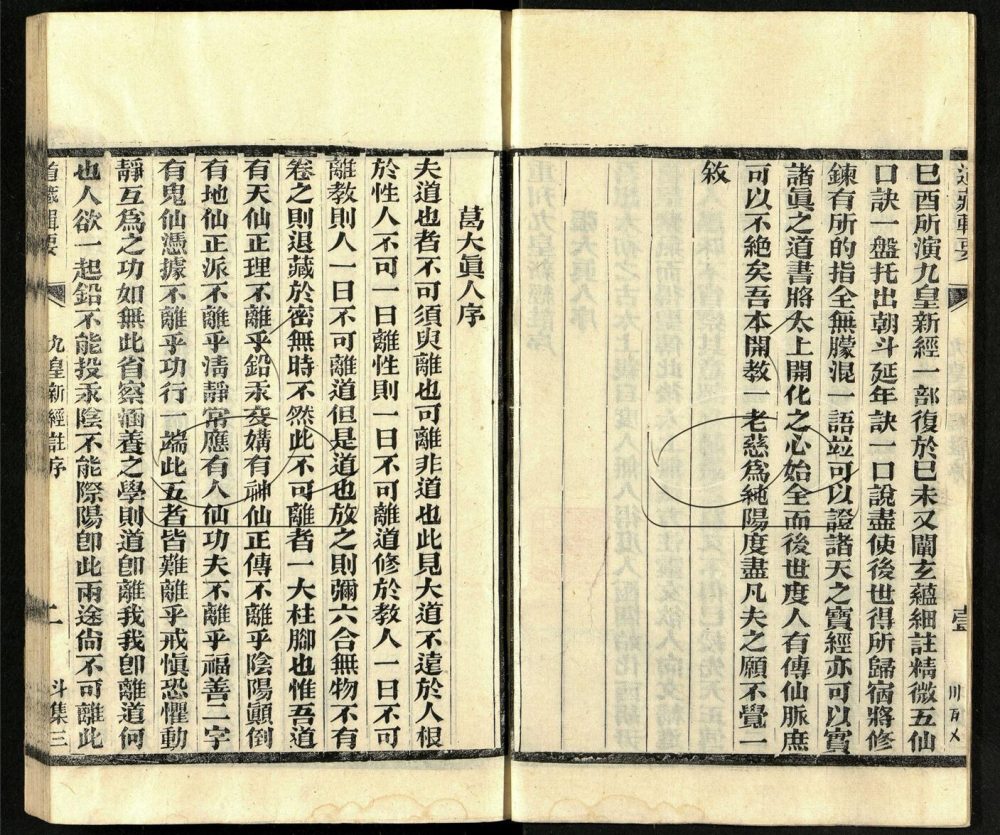 道藏輯要
壹
巳酉所演九皇新經一部復於巳未又闡玄蘊細註精微五仙
口訣一盤托出朝斗延年訣一口說盡使後世得所歸宿將修
鍊有所的指全無朦混一語竝可以證諸天之寶經亦可以實
諸眞之道書將太上開化之心始全而後世度人有傳仙脈庶
可以不絶矣吾本開教一老慈爲純陽度盡凡夫之願不覺二
敘
葛大眞人序
夫道也者不可須臾離也可離非道也此見大道不遠於人根
於性人不可一日離性則一日不可離道修於教人一日不可
離教則人一日不可離道但是道也放之則彌六合無物不有
卷之則退藏於密無時不然此不可離者一大柱腳也惟吾道
有天仙正理不離乎鉛汞妄媾有神仙正傳不離乎陰陽顚倒
有地仙正派不離乎淸靜常應有人仙功夫不離乎福善二字
有鬼仙憑據不離乎功行一端此五者皆難離乎戒愼恐懼動
靜互爲之功如無此省察涵養之學則道卽離我我卽離道何
也人欲一起鉛不能投汞陰不能際陽卽此兩途尙不可離此
道藏輯要
九皇新經註序
二
斗集三